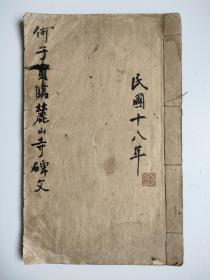 何子貞臨麓山寺碑文
民國十八年